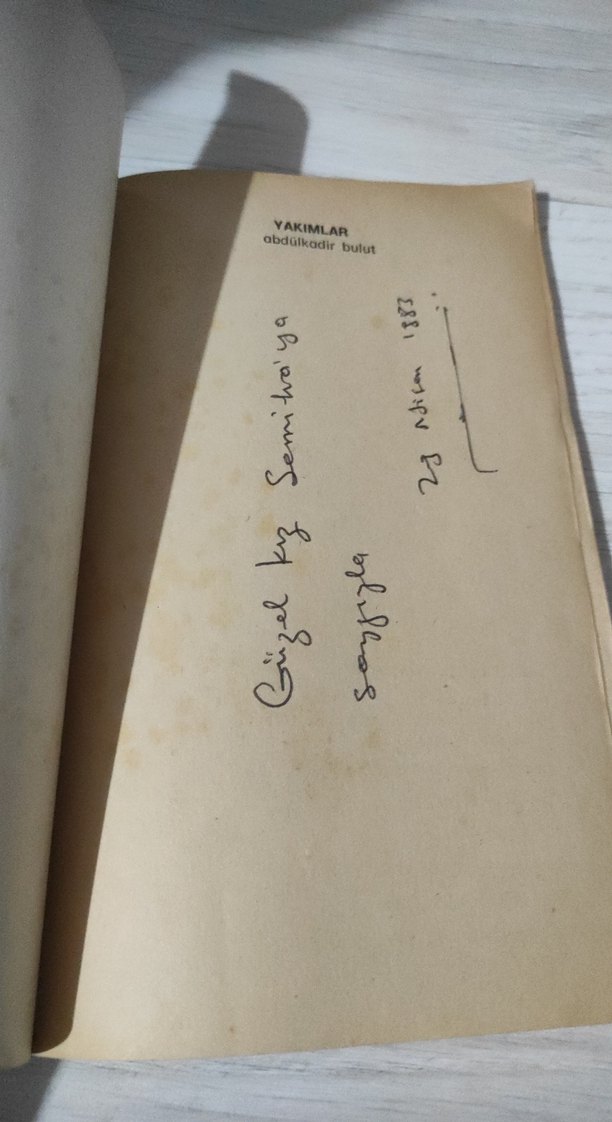 YAKIMLAR
abdülkadir bulut
Güzel kız Semiha'ya
saygıyla
23 Nisan 1983